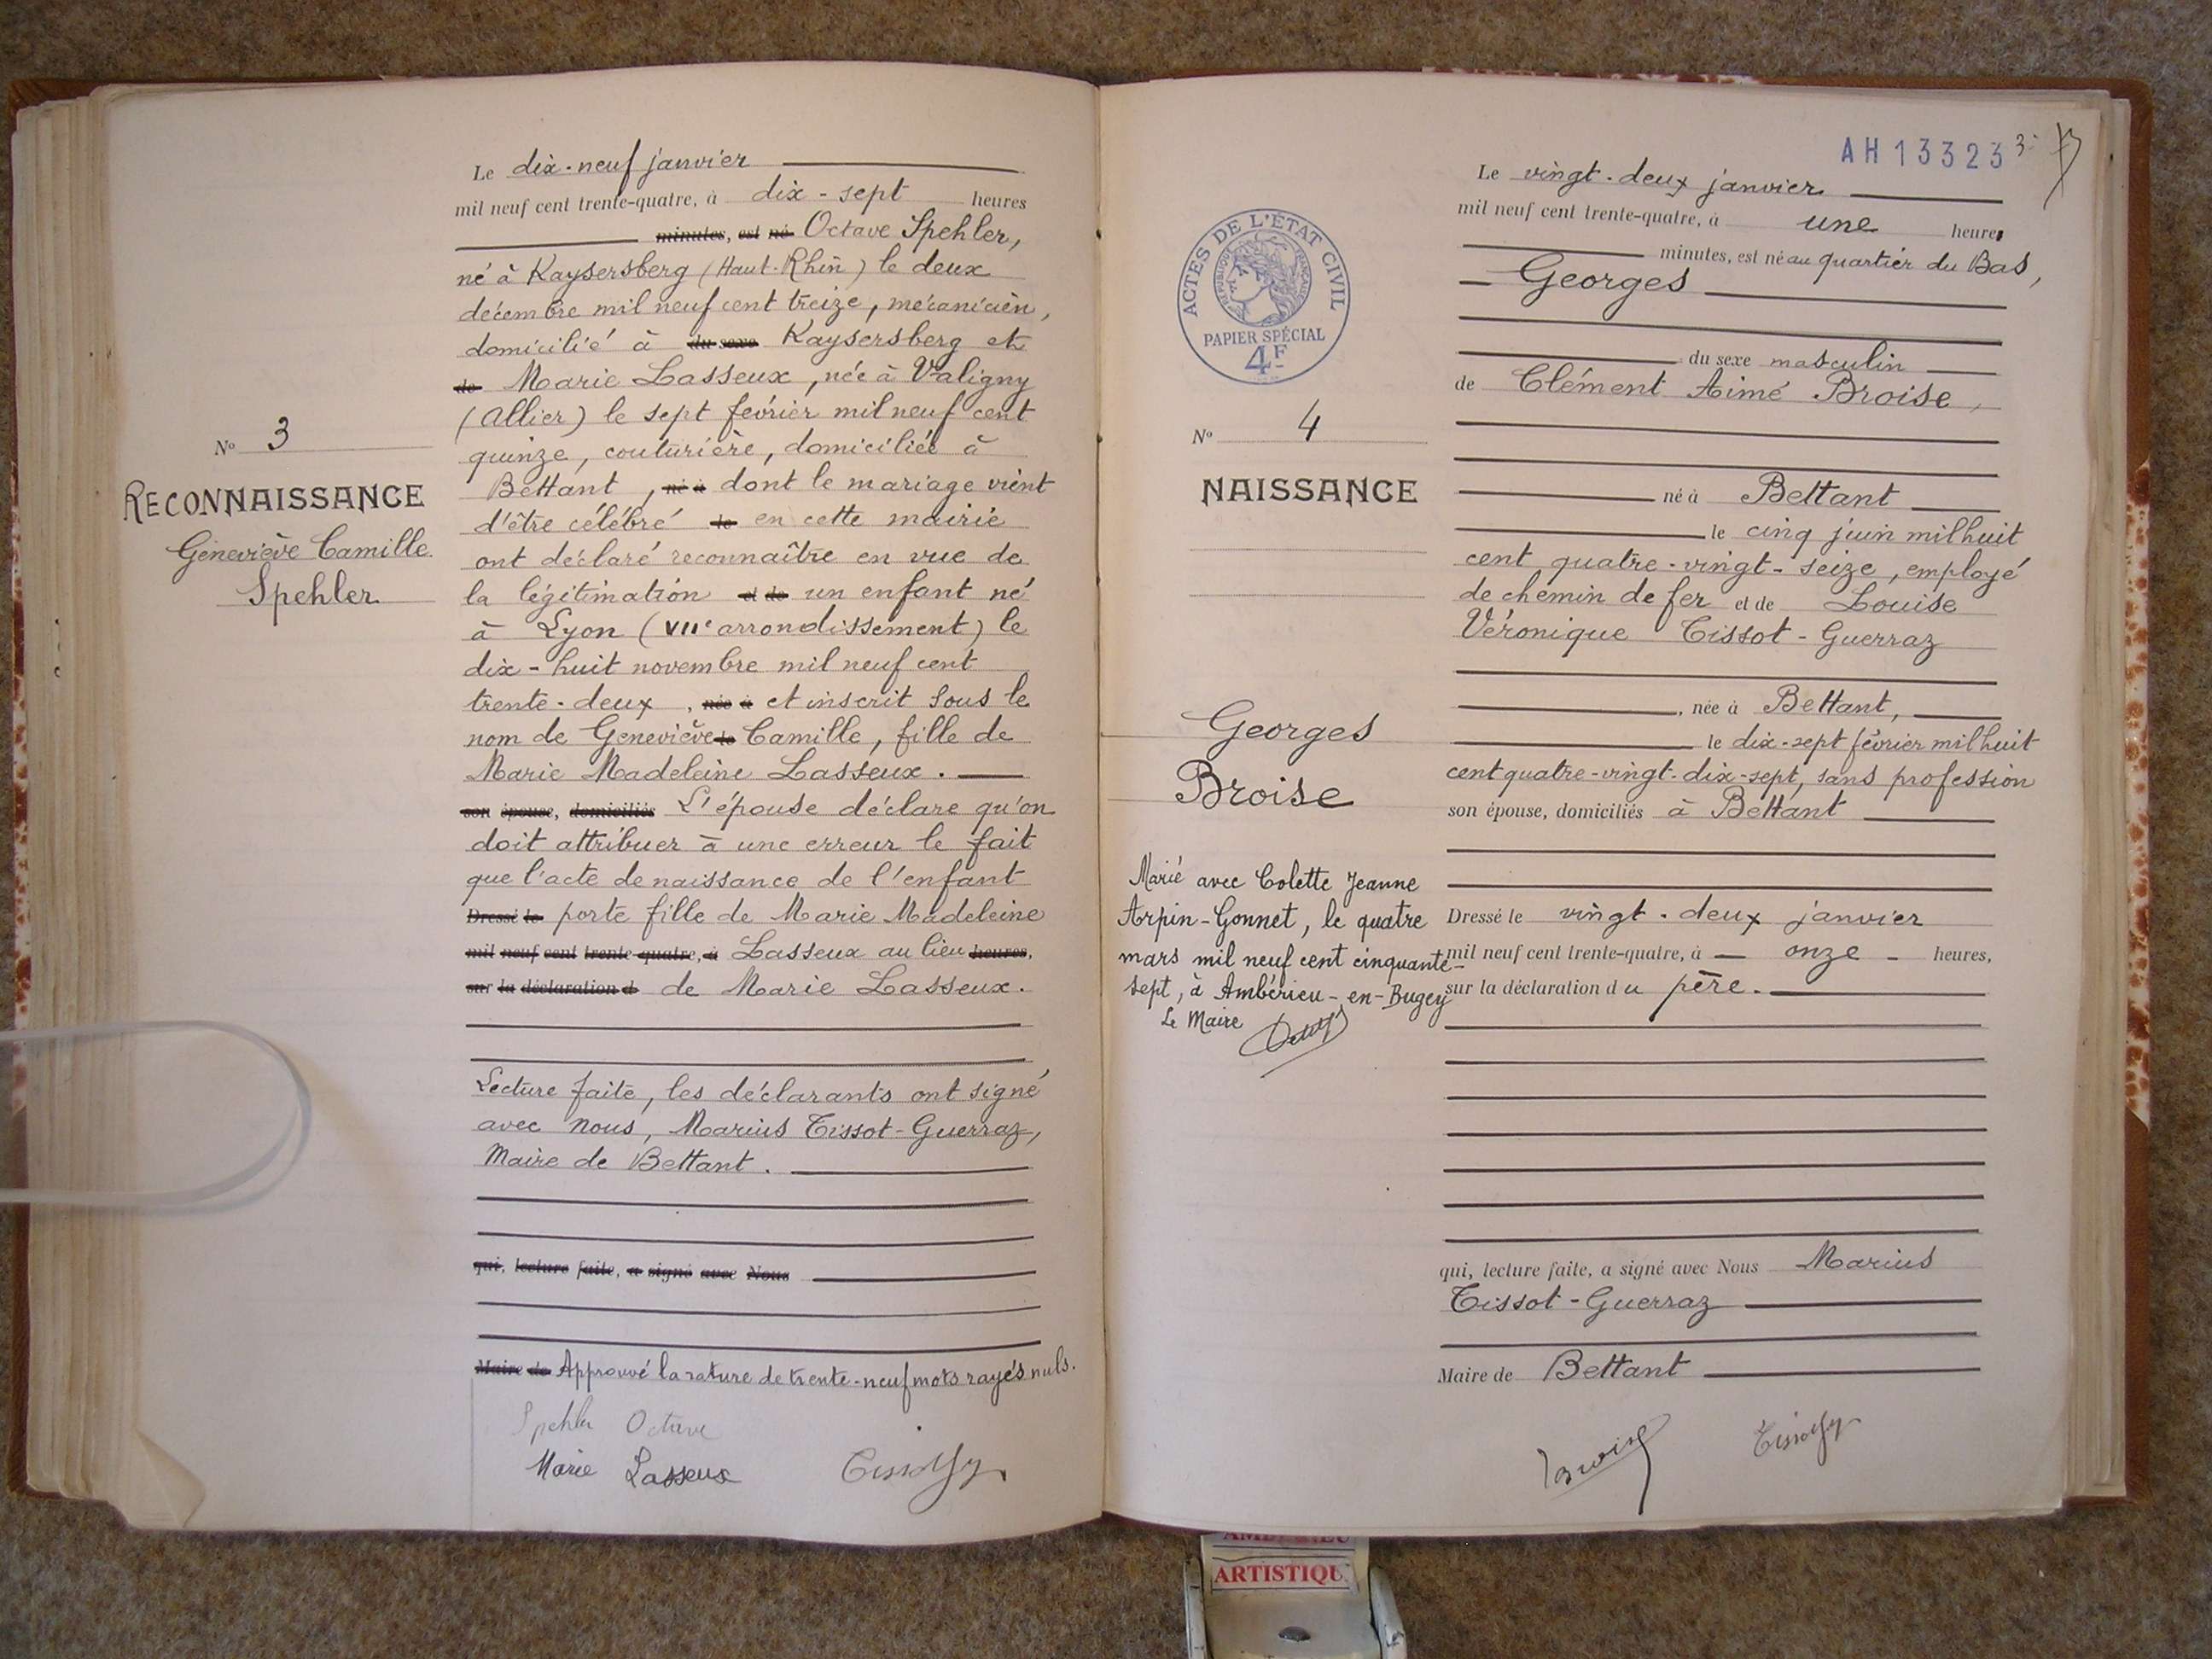 Le dix-neuf janvier
mil neuf cent trente-quatre, à dix-sept heures
minutes, est né Octave Spehler,
né à Kaysersberg (Haut-Rhin) le deux
décembre mil neuf cent treize, mécanicien,
domicilié à du sexe Kaysersberg et
de Marie Lasseux, née à Valigny
(Allier) le sept février mil neuf cent
quinze, couturière, domiciliée à
Bettant, né à dont le mariage vient
d'être célébré le en cette mairie
ont déclaré reconnaître en vue de
la légitimation et de un enfant né
à Lyon (VIIe arrondissement) le
dix-huit novembre mil neuf cent
trente-deux, née à et inscrit sous le
nom de Geneviève le Camille, fille de
Marie Madeleine Lasseux.
son épouse, domiciliés L'épouse déclare qu'on
doit attribuer à une erreur le fait
que l'acte de naissance de l'enfant
Dressé le porte fille de Marie Madeleine
mil neuf cent trente-quatre, à Lasseux au lieu heures,
sur la déclaration d de Marie Lasseux.
Lecture faite, les déclarants ont signé
avec nous, Marius Tissot-Guerraz,
Maire de Bettant.
qui, lecture faite, a signé avec Nous
Maire de Approuvé la rature de trente-neuf mots rayés nuls.
Spehler Octave
Marie Lasseux
No 3
RECONNAISSANCE
Geneviève Camille
Spehler
AH 13323
ACTES DE L'ÉTAT CIVIL
RÉPUBLIQUE FRANÇAISE
PAPIER SPÉCIAL
4F
No 4
NAISSANCE
Georges
Broise
Marié avec Colette Jeanne
Arpin-Gonnet, le quatre
mars mil neuf cent cinquante-
sept, à Ambérieu-en-Bugey
Le Maire
Le vingt-deux janvier
mil neuf cent trente-quatre, à une heure
minutes, est né au quartier du Bas,
Georges
du sexe masculin
de Clément Aimé Broise,
né à Bettant
le cinq juin mil huit
cent quatre-vingt-seize, employé
de chemin de fer et de Louise
Véronique Tissot-Guerraz
, née à Bettant,
le dix-sept février mil huit
cent quatre-vingt-dix-sept, sans profession
son épouse, domiciliés à Bettant
Dressé le vingt-deux janvier
mil neuf cent trente-quatre, à onze heures,
sur la déclaration du père.
qui, lecture faite, a signé avec Nous Marius
Tissot-Guerraz
Maire de Bettant
Broise
ARTISTIQU